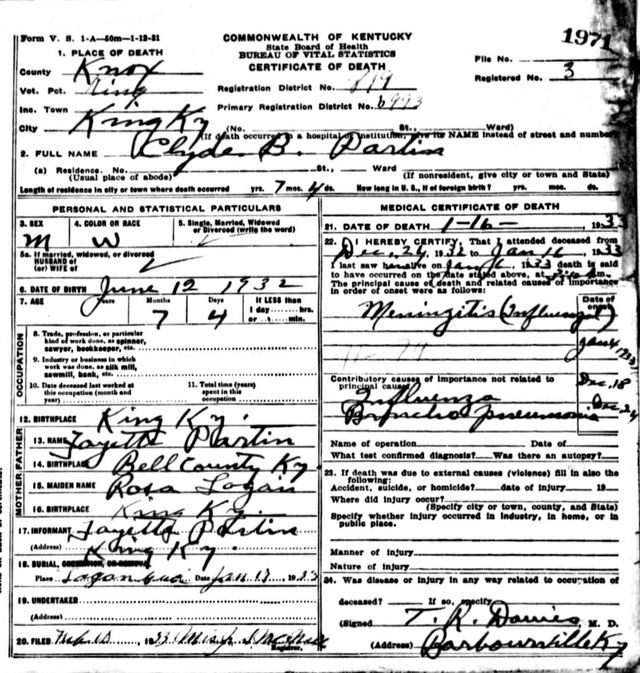 Form V. S. 1-A—50m—1-12-31
COMMONWEALTH OF KENTUCKY
State Board of Health
BUREAU OF VITAL STATISTICS
CERTIFICATE OF DEATH
1971
File No.
Registered No. 3
1. PLACE OF DEATH
County Knox
Vot. Pct. King
Inc. Town
City King Ky
Registration District No. 819
Primary Registration District No. 6993
(No. St., Ward)
(If death occurred in a hospital or institution, give its NAME instead of street and number)
2. FULL NAME Clyde B. Partin
(a) Residence. No. St., Ward
(Usual place of abode) (If nonresident, give city or town and State)
Length of residence in city or town where death occurred yrs. 7 mos. 4 ds. How long in U. S., if of foreign birth? yrs. mos. ds.
PERSONAL AND STATISTICAL PARTICULARS
3. SEX M
4. COLOR OR RACE W
5. Single, Married, Widowed or Divorced (write the word)
5a. If married, widowed, or divorced
HUSBAND of
(or) WIFE of
6. DATE OF BIRTH June 12 1932
7. AGE Years Months 7 Days 4 If LESS than 1 day hrs. or min.
OCCUPATION
8. Trade, profession, or particular kind of work done, as spinner, sawyer, bookkeeper, etc.
9. Industry or business in which work was done, as silk mill, sawmill, bank, etc.
10. Date deceased last worked at this occupation (month and year)
11. Total time (years) spent in this occupation
12. BIRTHPLACE King Ky.
FATHER
13. NAME Fayette Partin
14. BIRTHPLACE Bell County Ky.
MOTHER
15. MAIDEN NAME Rosa Logan
16. BIRTHPLACE King Ky.
17. INFORMANT Fayette Partin
(Address) King Ky.
18. BURIAL, CREMATION, OR REMOVAL
Place Logan Date Jan 17, 1933
19. UNDERTAKER
(Address)
20. FILED 1933
Registrar.
MEDICAL CERTIFICATE OF DEATH
21. DATE OF DEATH 1-16-, 1933
22. I HEREBY CERTIFY, That I attended deceased from
Dec. 24, 1932 to Jan 16, 1933
I last saw h alive on Jan 16, 1933 death is said
to have occurred on the date stated above, at m.
The principal cause of death and related causes of importance
in order of onset were as follows:
Date of onset
Meningitis (Influenzal)
Jan 4 1933
Contributory causes of importance not related to
principal cause:
Influenza Dec. 18
Broncho pneumonia Dec. 24
Name of operation Date of
What test confirmed diagnosis? Was there an autopsy?
23. If death was due to external causes (violence) fill in also the
following:
Accident, suicide, or homicide? date of injury 19
Where did injury occur?
(Specify city or town, county, and State)
Specify whether injury occurred in industry, in home, or in
public place.
Manner of injury
Nature of injury
24. Was disease or injury in any way related to occupation of
deceased? If so, specify
(Signed T. R. Davies, M. D.
(Address) Barbourville Ky